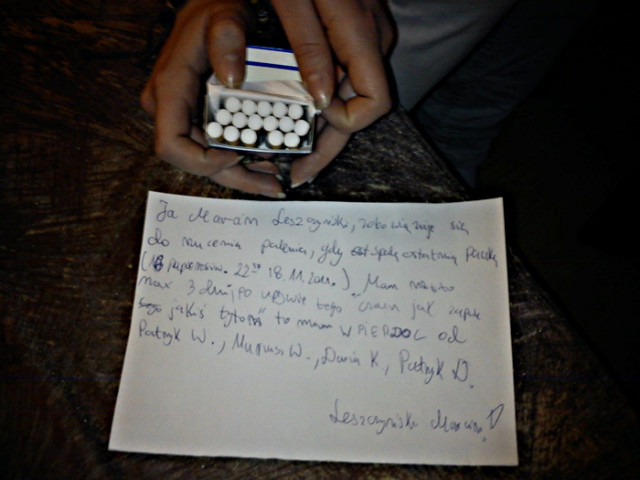 Ja Marcin Leszczyński, zobowiązuje się
do rzucenia palenia, gdy ostatnią paczkę
(18 papierosów. 22:30 18.11.2011.) Mam na to
max 3 dni, po upływie tego czasu jak
jakiś tytoń" to mam WPIERDOL od
Patryk W., Mariusz W., Daria K., Patryk D.
Leszczyński Marcin